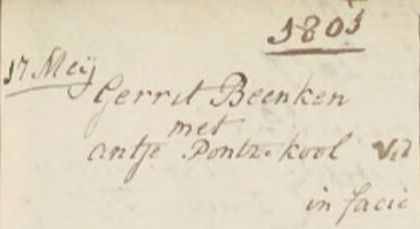 1801
17 Meij
Gerrit Beenken
met
antje Pontz. kool
in facie